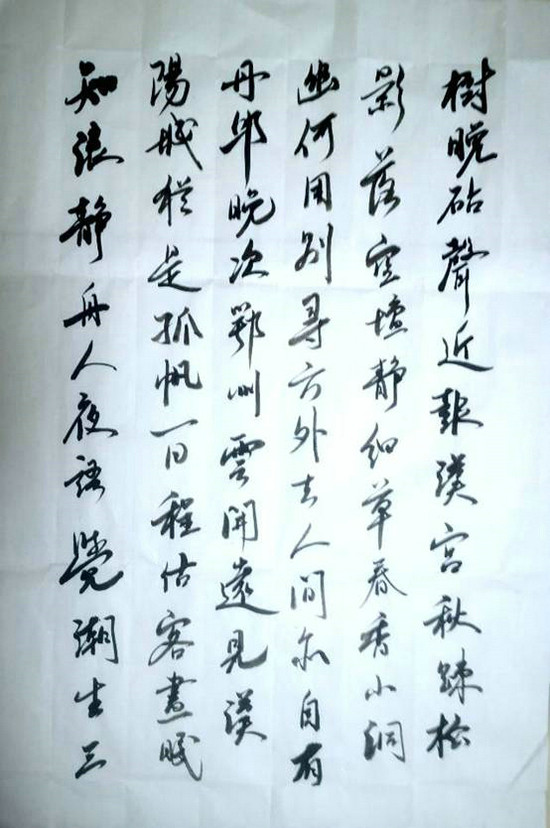 樹晚砧聲近報漢宮秋疎松
影落空壇靜細草春香小洞
幽何用别尋方外去人間亦自有
丹邱晚次鄂州雲開遠見漢
陽城猶是孤帆一日程估客晝眠
知浪静舟人夜語覺潮生三